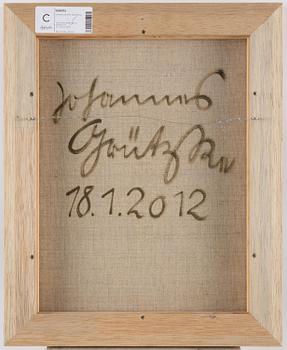 C
Johannes
Grützke
18.1.2012